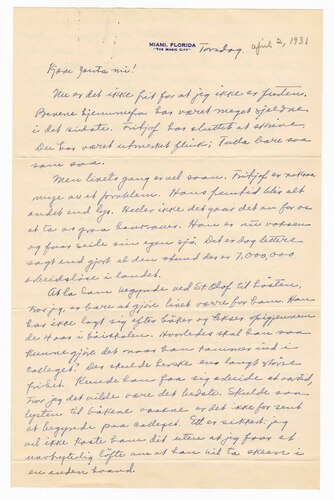 MIAMI, FLORIDA
"THE MAGIC CITY"
Torsdag. april 2, 1931
Kjære Jenta mi!
Nu er det ikke frit for at jeg ikke er furten.
Brevene hjemmefra har været meget sjeldne
i det sidste. Fritjof har sluttet at skrive.
Du har været utmerket flink; Tulla bare saa
som saa.
Men livets gang er vel saan. Fritjof er nokson
mye av et problem. Hans fremtid blir alt
andet end lys. Heller ikke det gaar det an for os
at ta os graa haar over. Han er nu voksen
og faar seile sin egen sjø. Det er dog lettere
sagt end gjort al den stund der er 7,000,000
arbeidsløse i landet.
At la ham begynde ved St. Olaf til høsten,
tror jeg, er bare at gjøre livet værre for ham. Han
har ikke lagt sig efter bøker og lekser igjennem
de 4 aar i høiskolen. Hvorledes skal han naa
kunne gjøre det naar han kommer ind i
colleget? Der skulde herske ens langt større
frihet. Kunde han faa sig arbeide et aarstid,
tror jeg det vilde være det bedste. Skulde saa
lysten til bøkene vaakne er det ikke for sent
at begynde paa colleget. Ett er sikkert: jeg
vil ikke koste ham dit uten at jeg faar et
uavbrytelig løfte om at han vil ta skeen i
en anden haand.